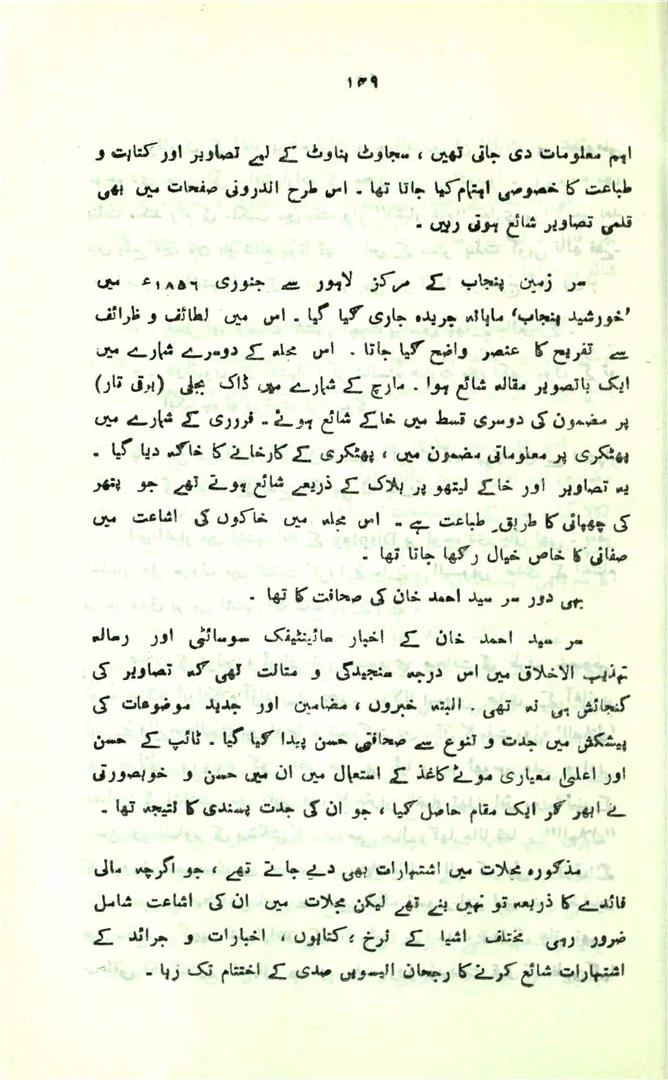 ۱۳۹
اہم معلومات دی جاتی تھیں ، سجاوٹ بناوٹ کے لیے تصاویر اور کتابت و
طباعت کا خصوصی اہتمام کیا جاتا تھا ۔ اس طرح اندرونی صفحات میں بھی
قلمی تصاویر شائع ہوتی رہیں ۔
سر زمین پنجاب کے مرکز لاہور سے جنوری ۱۸۵۶ء میں
’خورشید پنجاب‘ ماہانہ جریدہ جاری کیا گیا ۔ اس میں لطائف و ظرائف
سے تفریح کا عنصر واضح کیا جاتا ۔ اس مجلہ کے دوسرے شمارے میں
ایک باتصویر مقالہ شائع ہوا ۔ مارچ کے شمارے میں ڈاک بجلی (برقی تار)
پر مضمون کی دوسری قسط میں خاکے شائع ہوئے ۔ فروری کے شمارے میں
پھٹکری پر معلوماتی مضمون میں ، پھٹکری کے کارخانے کا خاکہ دیا گیا ۔
یہ تصاویر اور خاکے لیتھو پر بلاک کے ذریعے شائع ہوتے تھے جو پتھر
کی چھپائی کا طریق طباعت ہے ۔ اس مجلہ میں خاکوں کی اشاعت میں
صفائی کا خاص خیال رکھا جاتا تھا ۔
یہی دور سر سید احمد خان کی صحافت کا تھا ۔
سر سید احمد خان کے اخبار سائینٹیفک سوسائٹی اور رسالہ
تہذیب الاخلاق میں اس درجہ سنجیدگی و متانت تھی کہ تصاویر کی
گنجائش ہی نہ تھی . البتہ خبروں ، مضامین اور جدید موضوعات کی
پیشکش میں جدت و تنوع سے صحافتی حسن پیدا کیا گیا ۔ ٹائپ کے حسن
اور اعلیٰ معیاری موٹے کاغذ کے استعمال میں ان میں حسن و خوبصورتی
نے ابھر کر ایک مقام حاصل کیا ، جو ان کی جدت پسندی کا نتیجہ تھا ۔
مذکورہ مجلات میں اشتہارات بھی دیے جاتے تھے ، جو اگرچہ مالی
فائدے کا ذریعہ تو نہیں بنے تھے لیکن مجلات میں ان کی اشاعت شامل
ضرور رہی مختلف اشیا کے نرخ ؛ کتابوں ، اخبارات و جرائد کے
اشتہارات شائع کرنے کا رجحان انیسویں صدی کے اختتام تک رہا ۔